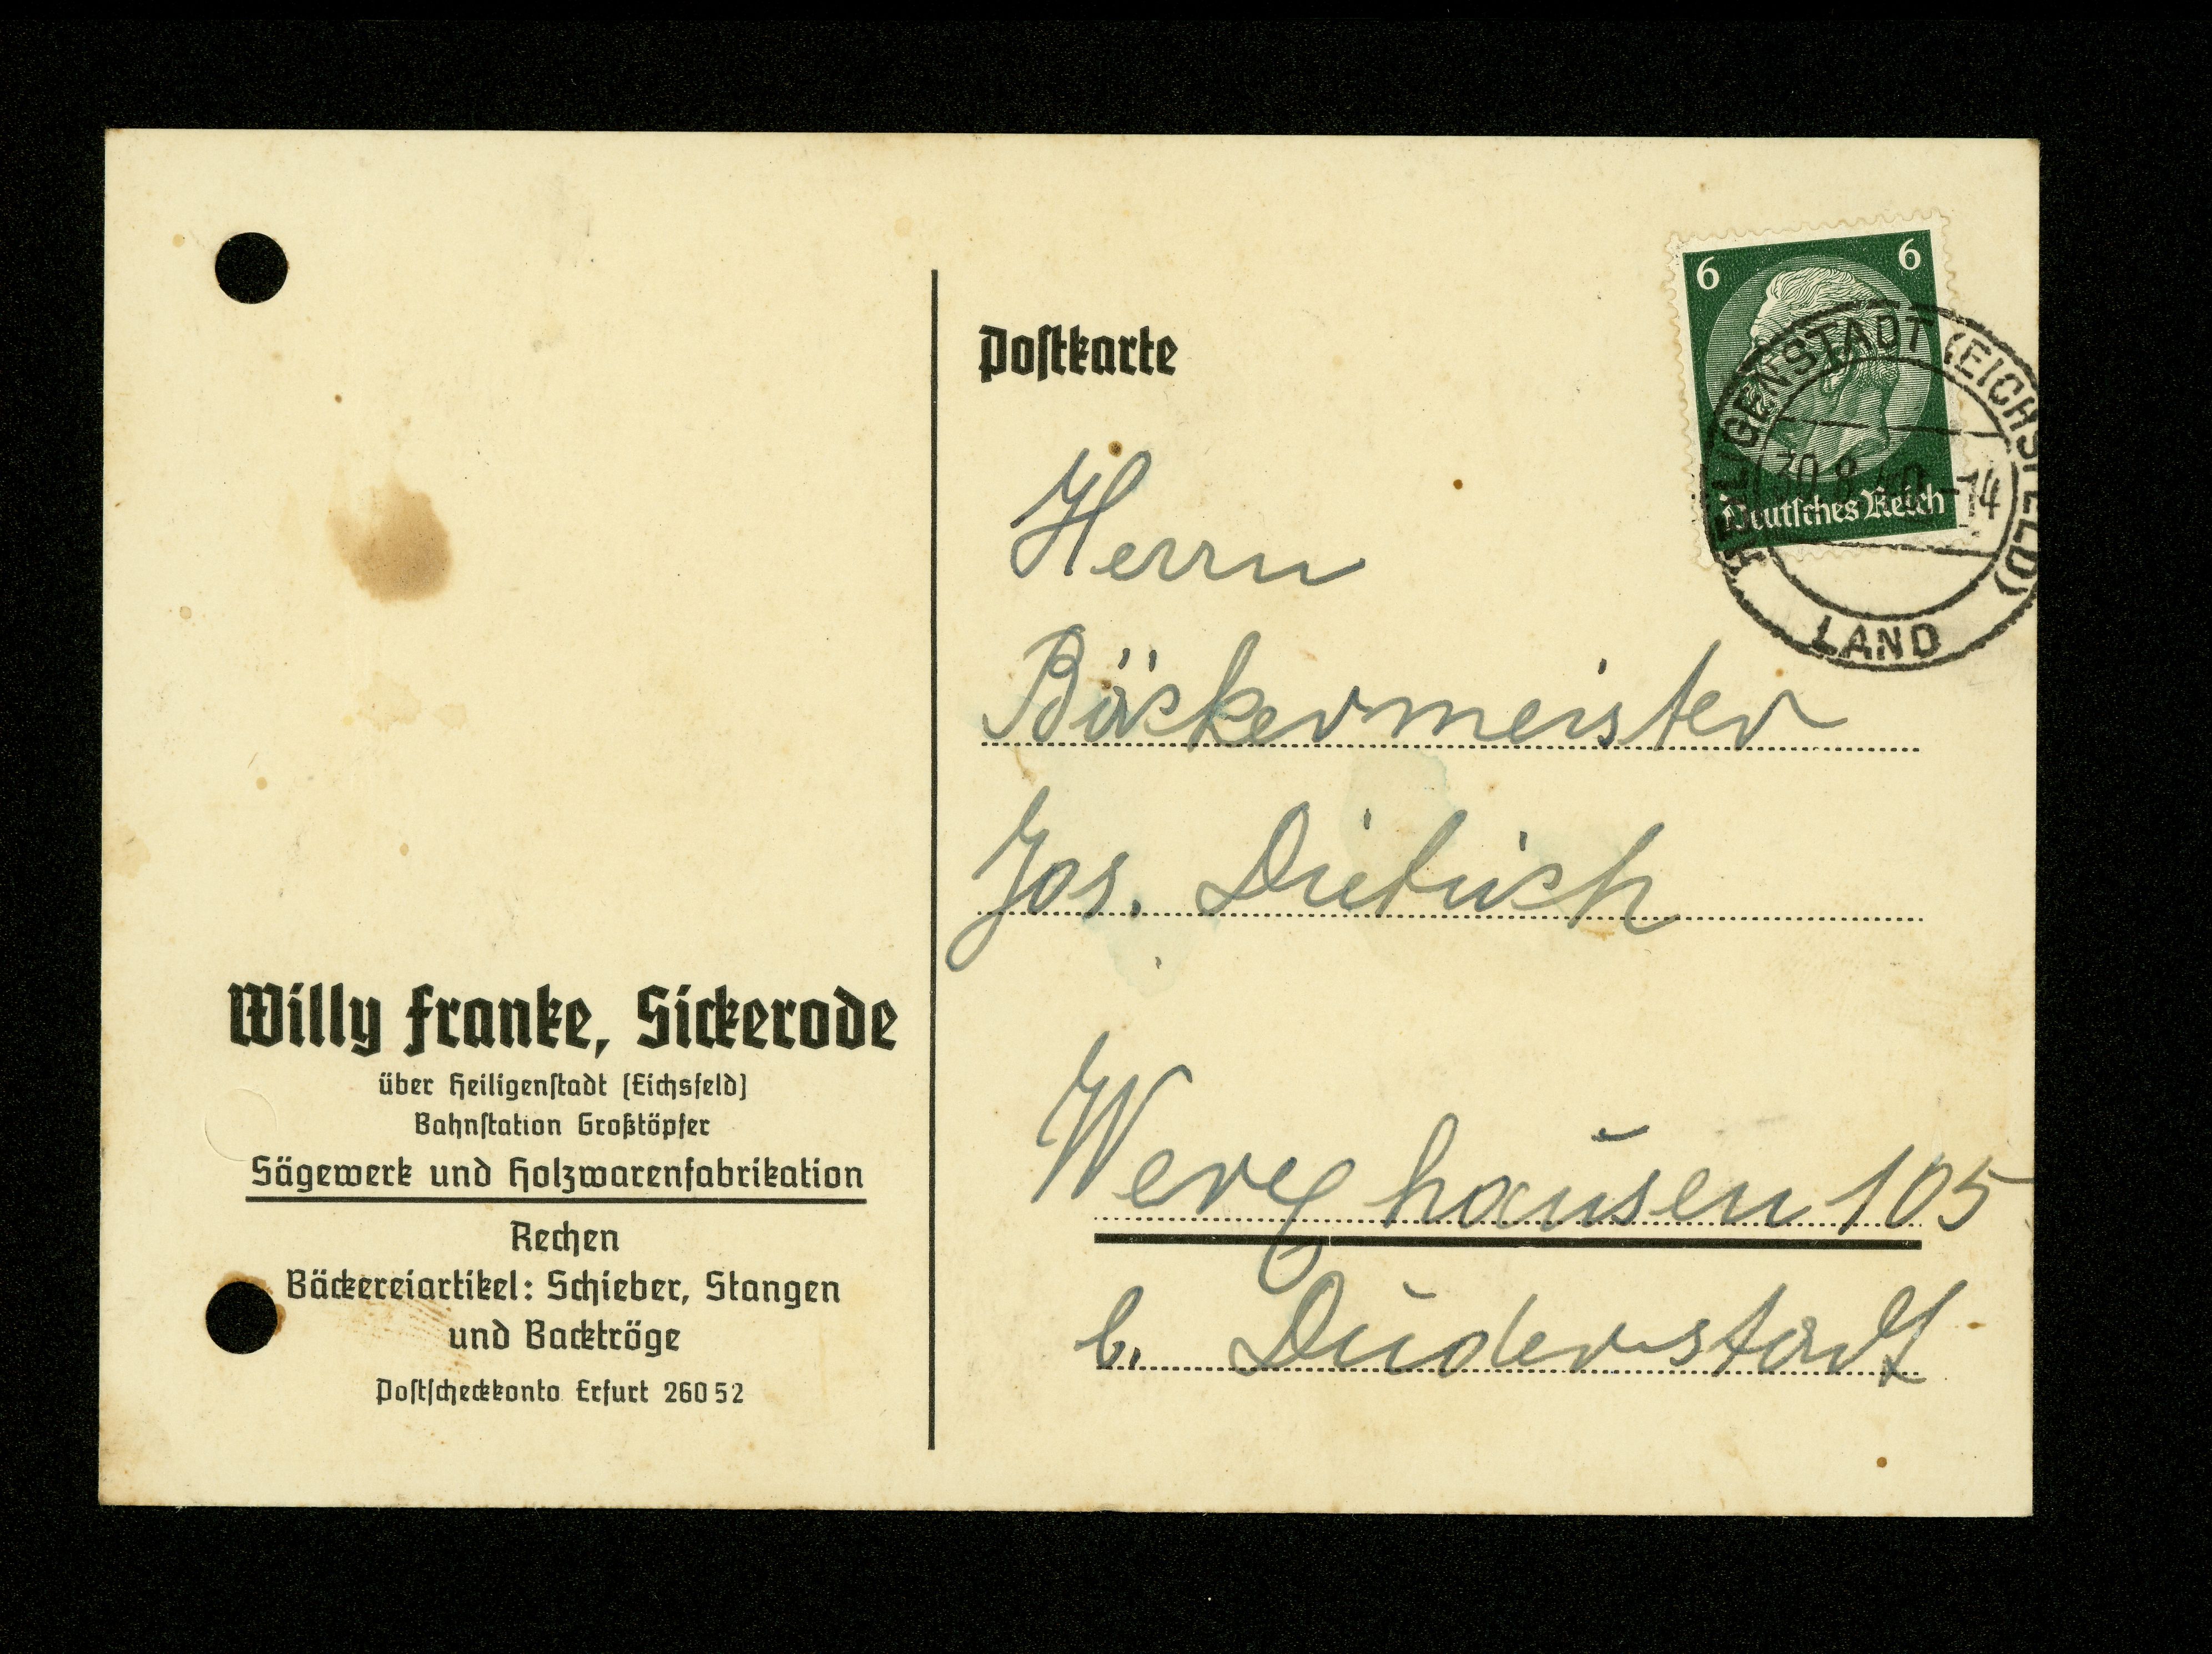 Postkarte
6 6
Deutsches Reich
HEILIGENSTADT (EICHSFELD)
30.8.40-14
LAND
Herrn
Bäckermeister
Jos. Dietrich
Werxhausen 105
b. Duderstadt
Willy Franke, Sickerode
über Heiligenstadt (Eichsfeld)
Bahnstation Großtöpfer
Sägewerk und Holzwarenfabrikation
Rechen
Bäckereiartikel: Schieber, Stangen
und Backtröge
Postscheckkonto Erfurt 26052